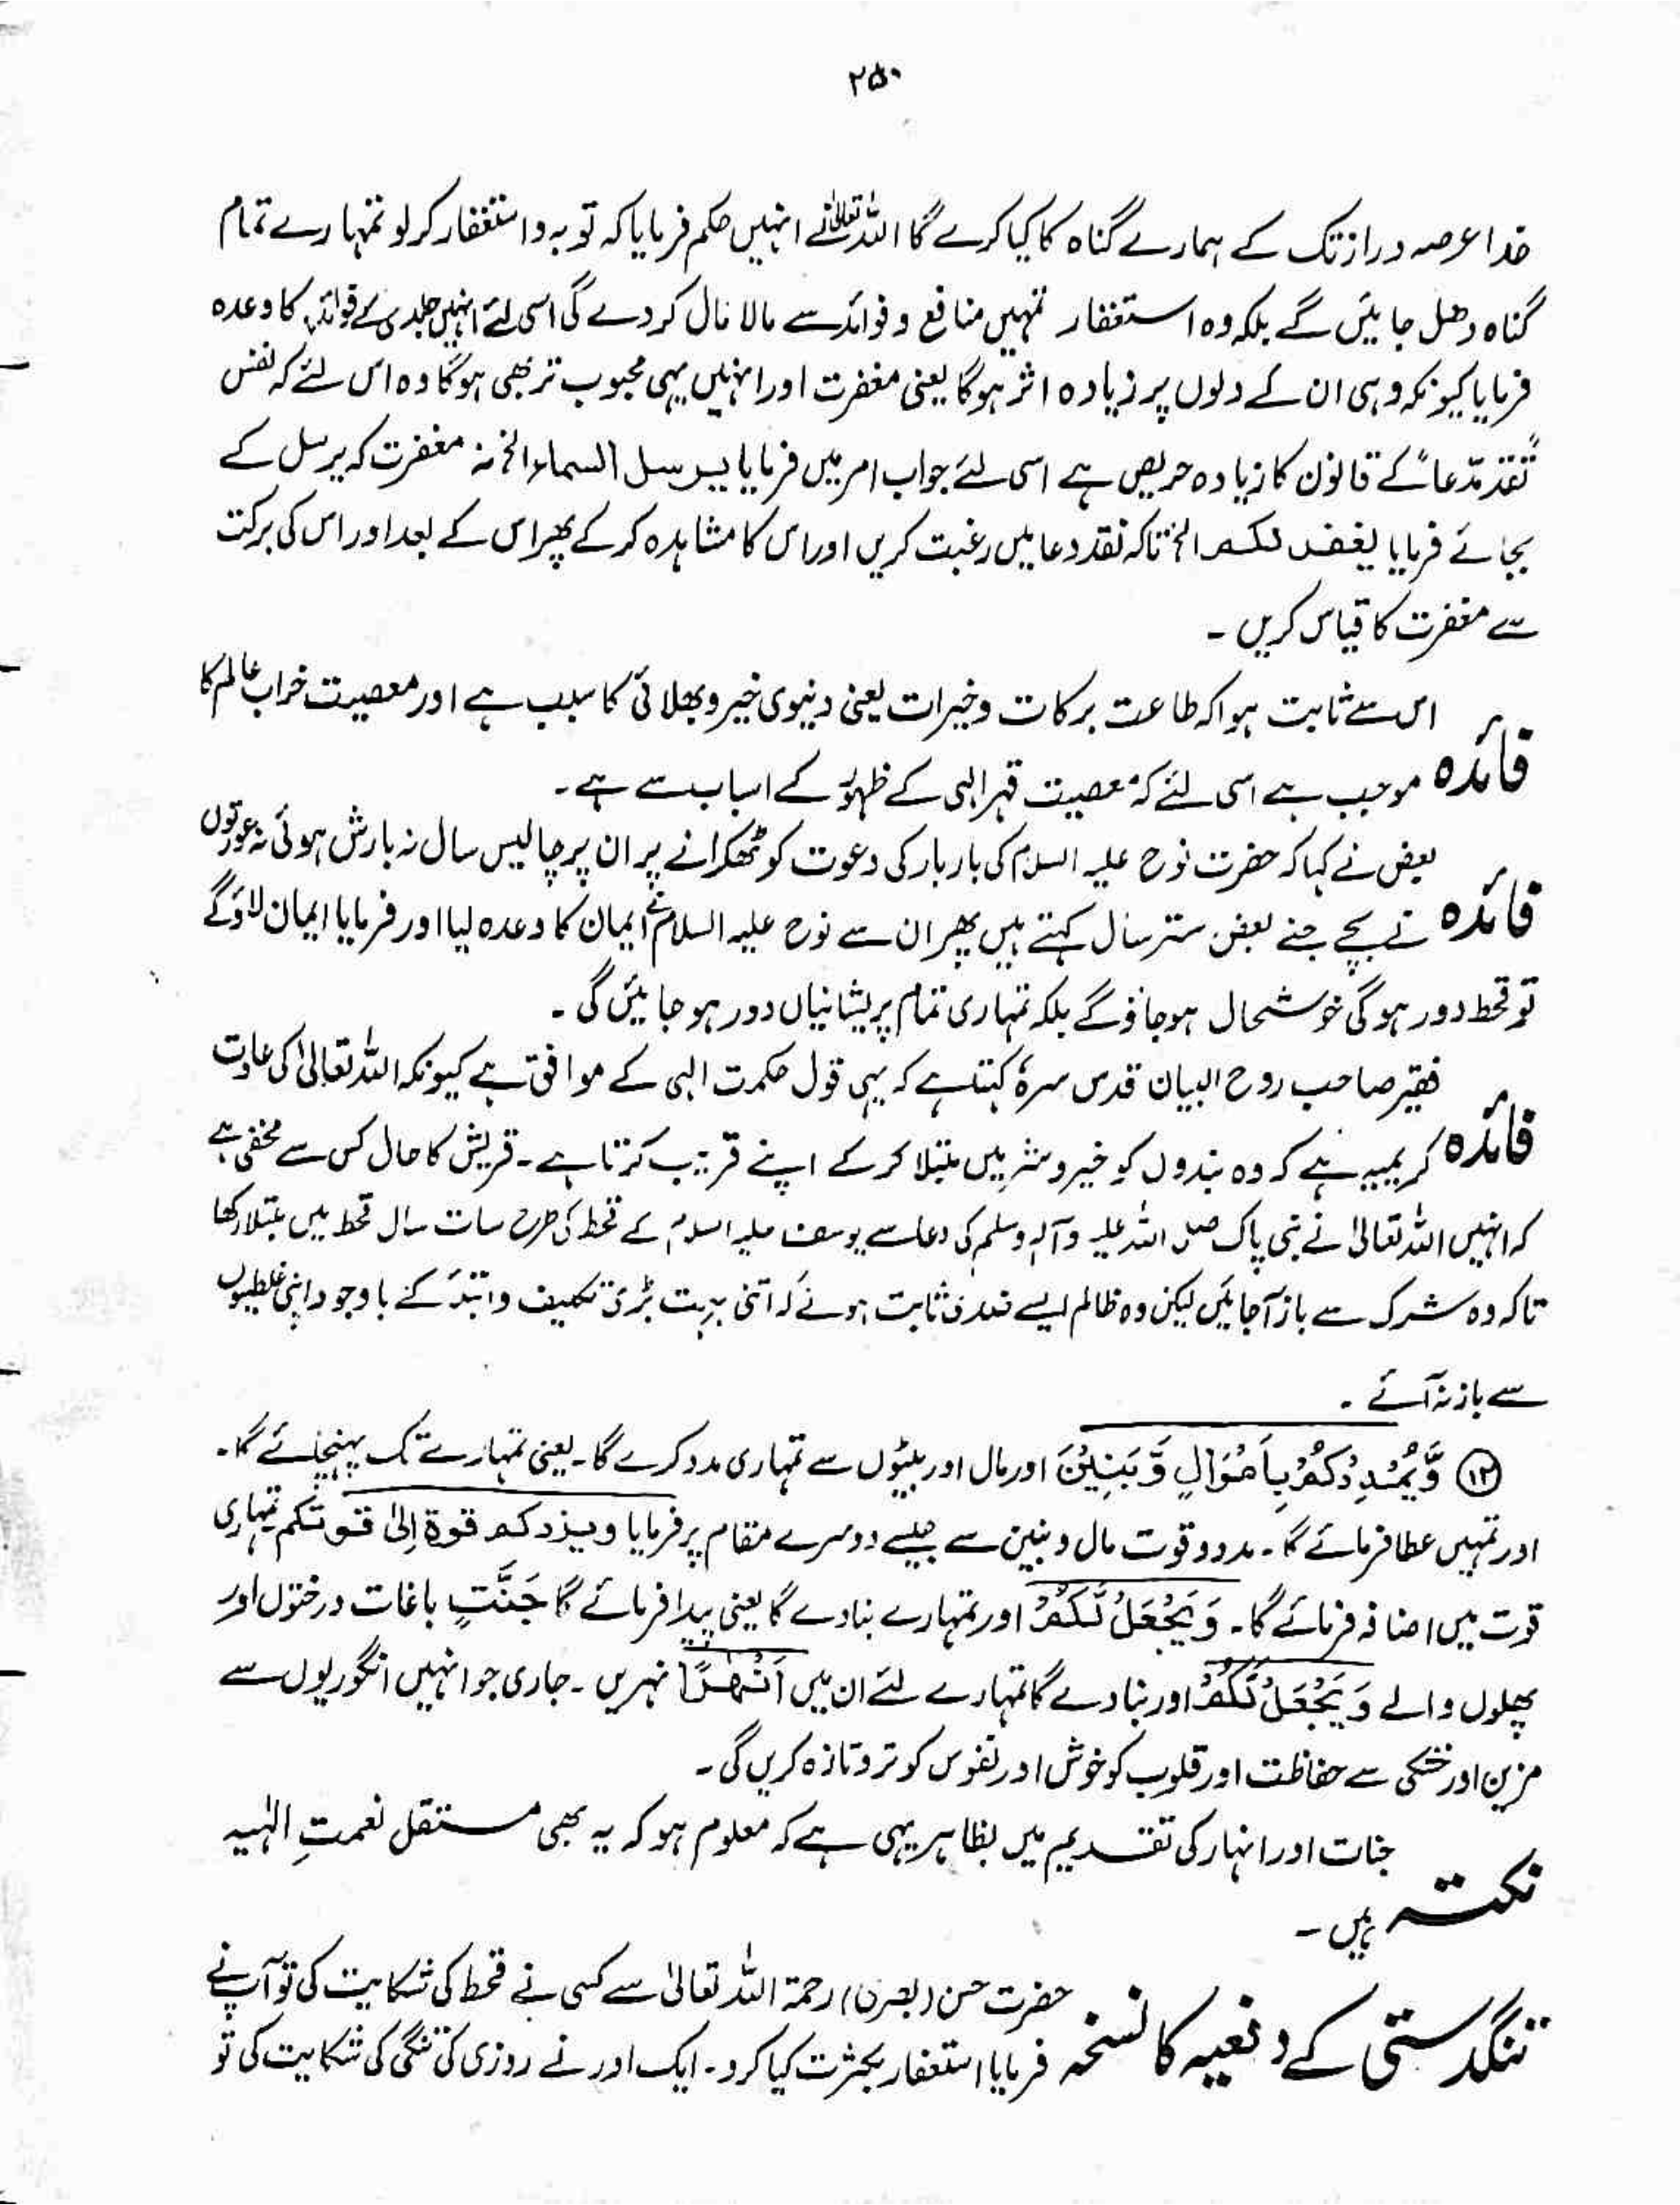 ۲۵۰
خدا عرصہ دراز تک کے ہمارے گناہ کا کیا کرے گا اللہ تعالیٰ نے انہیں حکم فرمایا کہ توبہ و استغفار کر لو تمہارے تمام
گناہ دھل جائیں گے بلکہ وہ استغفار تمہیں منافع و فوائد سے مالا مال کر دے گی اسی لئے انہیں جلدی کے فوائد کا وعدہ
فرمایا کیونکہ وہی ان کے دلوں پر زیادہ اثر ہوگا یعنی مغفرت اور انہیں یہی محبوب تر بھی ہوگا وہ اس لئے کہ نفس
نقد مدعا کے قانون کا زیادہ حریص ہے اسی لئے جواب امر میں فرمایا یرسل السماء الخ نہ مغفرت کہ یرسل کے
بجائے فرمایا یغفر لکم الخ تاکہ نقد دعا میں رغبت کریں اور اس کا مشاہدہ کر کے پھر اس کے بعد اور اس کی برکت
سے مغفرت کا قیاس کریں ۔
اس سے ثابت ہوا کہ طاعت برکات و خیرات یعنی دنیوی خیر و بھلائی کا سبب ہے اور معصیت خراب عالم کا
فائدہ موجب ہے اسی لئے کہ معصیت قہر الہی کے ظہور کے اسباب سے ہے ۔
بعض نے کہا کہ حضرت نوح علیہ السلام کی بار بار کی دعوت کو ٹھکرانے پر ان پر چالیس سال نہ بارش ہوئی نہ عورتوں
فائدہ نے بچے جنے بعض ستر سال کہتے ہیں پھر ان سے نوح علیہ السلام نے ایمان کا وعدہ لیا اور فرمایا ایمان لاؤ گے
تو قحط دور ہوگی خوشحال ہو جاؤ گے بلکہ تمہاری تمام پریشانیاں دور ہو جائیں گی ۔
فقیر صاحب روح البیان قدس سرہ کہتا ہے کہ یہی قول حکمت الہی کے موافق ہے کیونکہ اللہ تعالیٰ کی عادت
فائدہ کریمہ ہے کہ وہ بندوں کو خیر و شر میں مبتلا کر کے اپنے قریب کرتا ہے ۔ قریش کا حال کس سے مخفی ہے
کہ انہیں اللہ تعالیٰ نے نبی پاک صلی اللہ علیہ وآلہ وسلم کی دعا سے یوسف علیہ السلام کے قحط کی طرح سات سال قحط میں مبتلا رکھا
تاکہ وہ شرک سے باز آجائیں لیکن وہ ظالم ایسے ثابت ہوئے کہ اتنی بہت بڑی تکلیف و کے باوجود اپنی غلطیوں
سے باز نہ آئے ۔
⑫ وَّیُمْدِدْکُمْ بِاَمْوَالٍ وَّبَنِیْنَ اور مال اور بیٹوں سے تمہاری مدد کرے گا ۔ یعنی تمہارے تک پہنچائے گا ۔
اور تمہیں عطا فرمائے گا ۔ مدد و قوت مال و بنین سے جیسے دوسرے مقام پر فرمایا ویزدکم قوۃ اِلیٰ قوتکم تمہاری
قوت میں اضافہ فرمائے گا ۔ وَیَجْعَلْ لَّکُمْ اور تمہارے بنادے گا یعنی پیدا فرمائے گا جَنّٰتٍ باغات درختوں اور
پھلوں والے وَیَجْعَلْ لَّکُمْ اور بنادے گا تمہارے لئے ان میں اَنْھٰرًا نہریں ۔ جاری جو انہیں انگوریوں سے
مزین اور خشکی سے حفاظت اور قلوب کو خوش اور نفوس کو تر و تازہ کریں گی ۔
جنات اور انہار کی تقدیم میں بظاہر یہی ہے کہ معلوم ہو کہ یہ بھی مستقل نعمتِ الٰہیہ
نکتہ ہیں ۔
حضرت حسن (بصری) رحمۃ اللہ تعالیٰ سے کسی نے قحط کی شکایت کی تو آپ نے
تنگدستی کے دفعیہ کا نسخہ فرمایا استغفار بکثرت کیا کرو ۔ ایک اور نے روزی کی تنگی کی شکایت کی تو